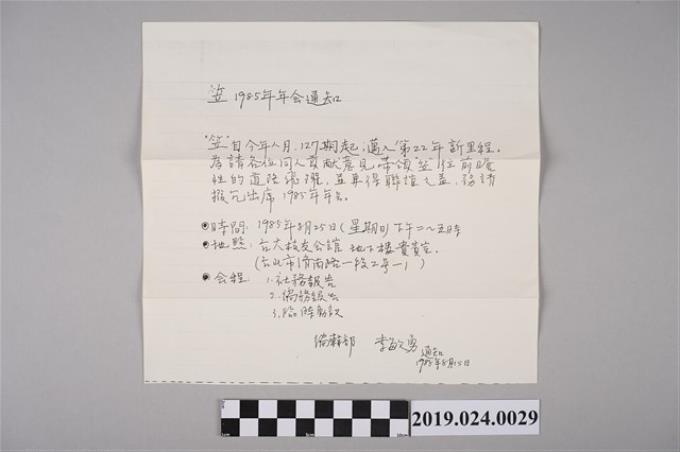 笠 1985年年会通知
"笠"自今年八月,127期起,邁入第22年新里程。
為請各位同人貢獻意見,帶領"笠"往前瞻
性的道路飛躍,並再得聯誼之益,務請
撥冗出席1985年年会。
時間:1985年8月25日(星期日)下午二~五時
地點:台大校友会館 地下樓貴賓室。
(台北市濟南路一段2号-1)
会程:1.社務報告
2.編務報告
3.臨時動議
編輯部 李敏勇
通知
1985年8月15日
2019.024.0029